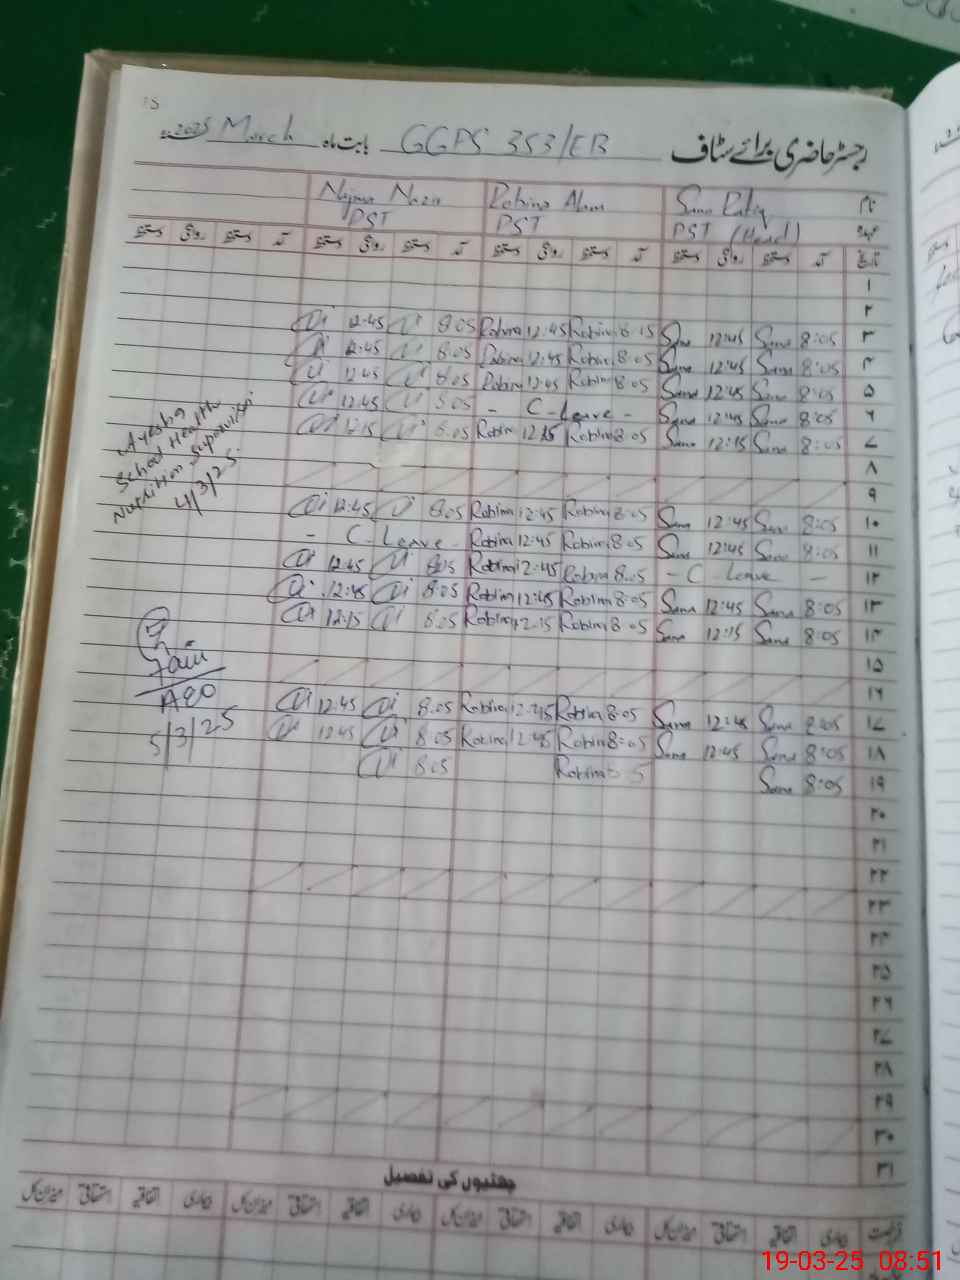 رجسٹر حاضری برائے سٹاف GGPS 353/EB بابت ماہ March 2025
نام Sana Robina Alam Najma Nazir
عہدہ PST (Head) PST PST
تاریخ آمد دستخط روانگی دستخط آمد دستخط روانگی دستخط آمد دستخط روانگی دستخط آمد دستخط روانگی دستخط
۱
۲
۳ 8:05 Sana 12:45 Sana 8:15 Robina 12:45 Robina 8:05 12:45
۴ 8:05 Sana 12:45 Sana 8:05 Robina 12:45 Robina 8:05 12:45
۵ 8:05 Sana 12:45 Sana 8:05 Robina 12:45 Robina 8:05 12:45
۶ 8:05 Sana 12:45 Sana - C-Leave - 8:05 12:45
۷ 8:05 Sana 12:15 Sana 8:05 Robina 12:15 Robin 8:05 12:15
۸
۹
۱۰ 8:05 Sana 12:45 Sana 8:05 Robina 12:45 Robina 8:05 12:45
۱۱ 8:05 Sana 12:45 Sana 8:05 Robina 12:45 Robina - C-Leave -
۱۲ - C-Leave - 8:05 Robina 12:45 Robina 8:05 12:45
۱۳ 8:05 Sana 12:45 Sana 8:05 Robina 12:45 Robina 8:05 12:45
۱۴ 8:05 Sana 12:15 Sana 8:05 Robina 12:15 Robina 8:05 12:15
۱۵
۱۶
۱۷ 8:05 Sana 12:45 Sana 8:05 Robina 12:45 Robina 8:05 12:45
۱۸ 8:05 Sana 12:45 Sana 8:05 Robina 12:45 Robina 8:05 12:45
۱۹ 8:05 Sana Robina 8:05
۲۰
۲۱
۲۲
۲۳
۲۴
۲۵
۲۶
۲۷
۲۸
۲۹
۳۰
۳۱
Ayesha
School Health
Nutrition Supervisor
4/3/25
AEO
5/3/25
چھٹیوں کی تفصیل
رخصت بیماری اتفاقیہ استحقاقی میزان کل بیماری اتفاقیہ استحقاقی میزان کل بیماری اتفاقیہ استحقاقی میزان کل
19-03-25 08:51